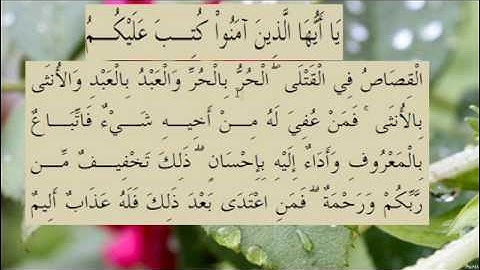 يَا أَيُّهَا الَّذِينَ آمَنُواْ كُتِبَ عَلَيْكُمُ
الْقِصَاصُ فِي الْقَتْلَى ۖ الْحُرُّ بِالْحُرِّ وَالْعَبْدُ بِالْعَبْدِ وَالْأُنثَى
بِالْأُنثَى ۚ فَمَنْ عُفِيَ لَهُ مِنْ أَخِيهِ شَيْءٌ فَاتِّبَاعٌ
بِالْمَعْرُوفِ وَأَدَاءٌ إِلَيْهِ بِإِحْسَانٍ ۗ ذَلِكَ تَخْفِيفٌ مِّن
رَّبِّكُمْ وَرَحْمَةٌ ۗ فَمَنِ اعْتَدَى بَعْدَ ذَلِكَ فَلَهُ عَذَابٌ أَلِيمٌ